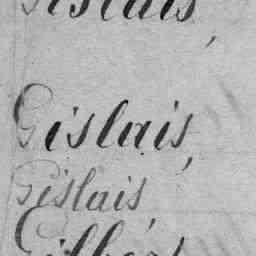 Gislais,
Gislais,
Gislais,
Gilbert